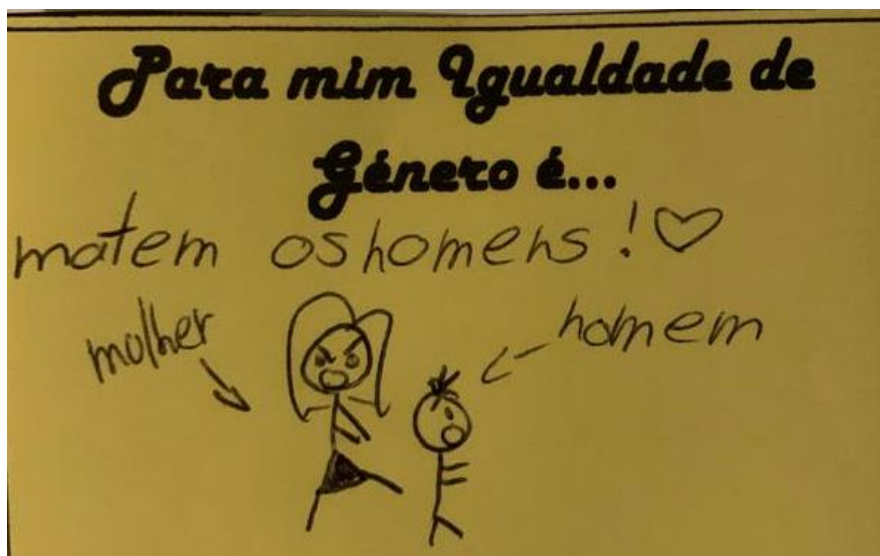 Para mim Igualdade de
Género é...
matem os homens ! ♡
mulher
homem